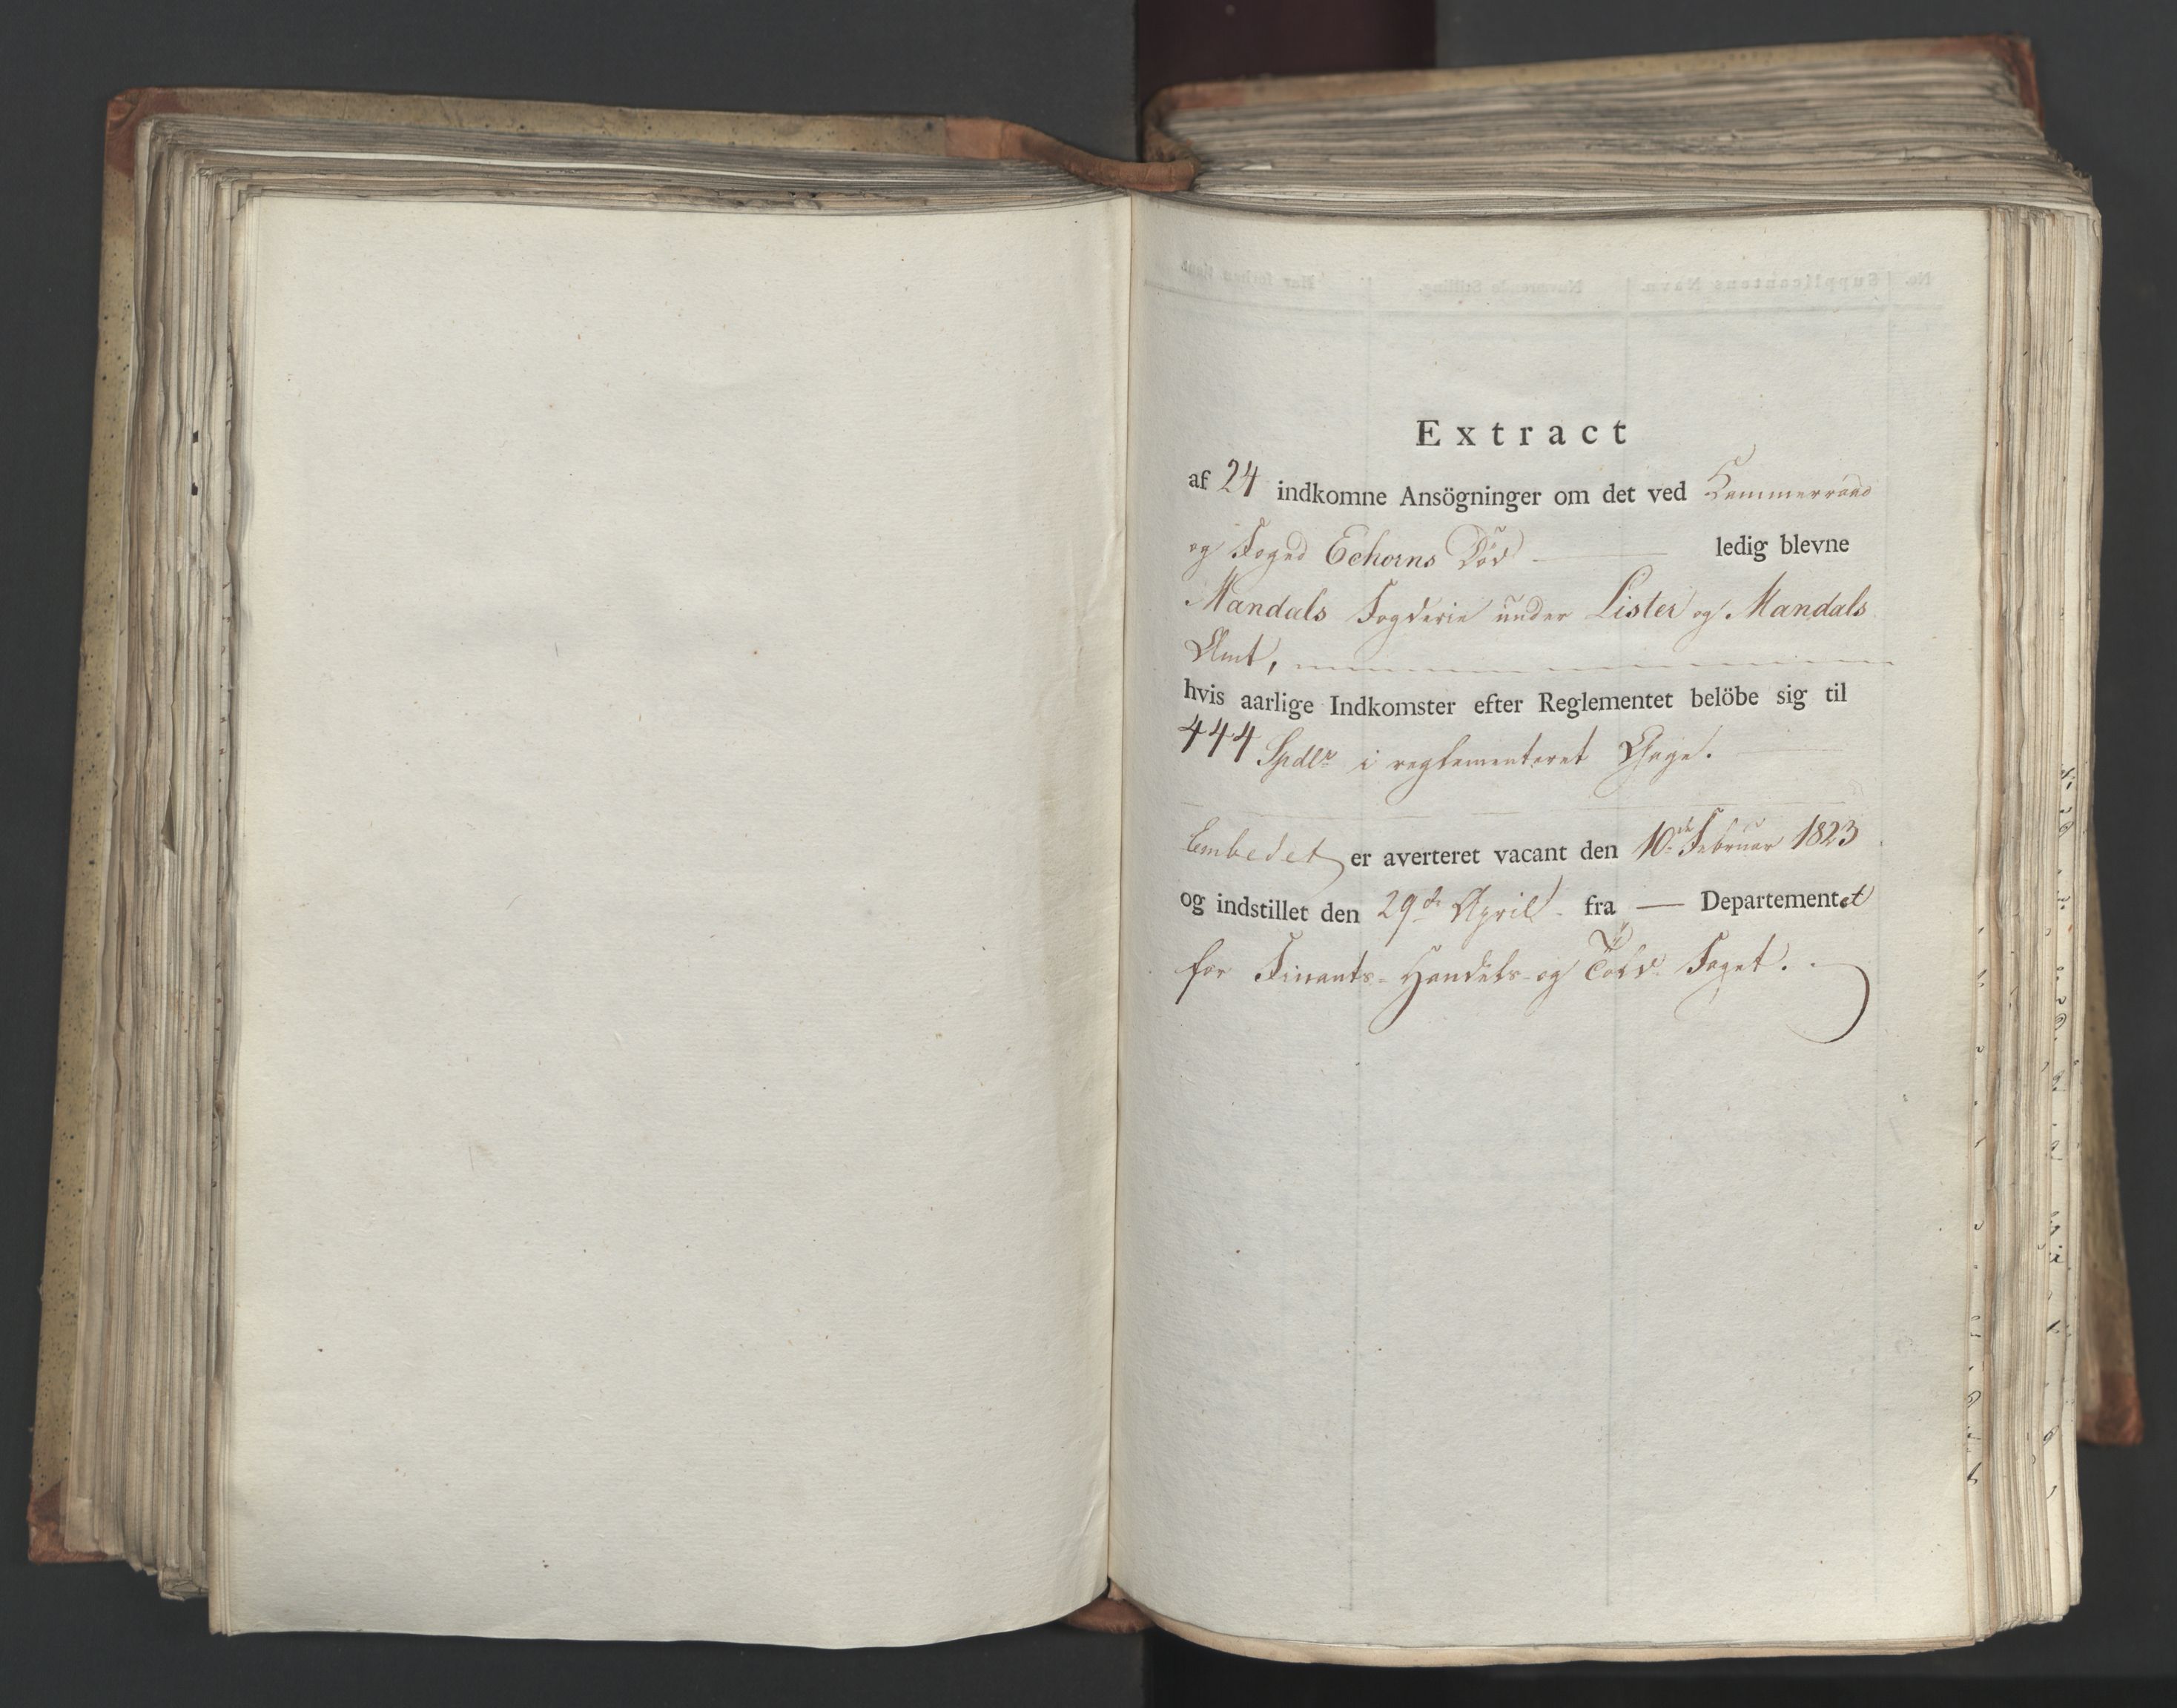 Extract
af 24 indkomne Ansögninger om det ved Kammerraad
og Foged Echorns Död — ledig blevne
Mandals Fogderie under Lister og Mandals
Amt,
hvis aarlige Indkomster efter Reglementet belöbe sig til
444 Spdlr i reglementeret Gage.
Embedet er averteret vacant den 10de Februar 1823
og indstillet den 29de April fra — Departementet
for Finants- Handels- og Told- Faget.
No. Supplicantens Navn. Nuværende Stilling. Har forhen tjent